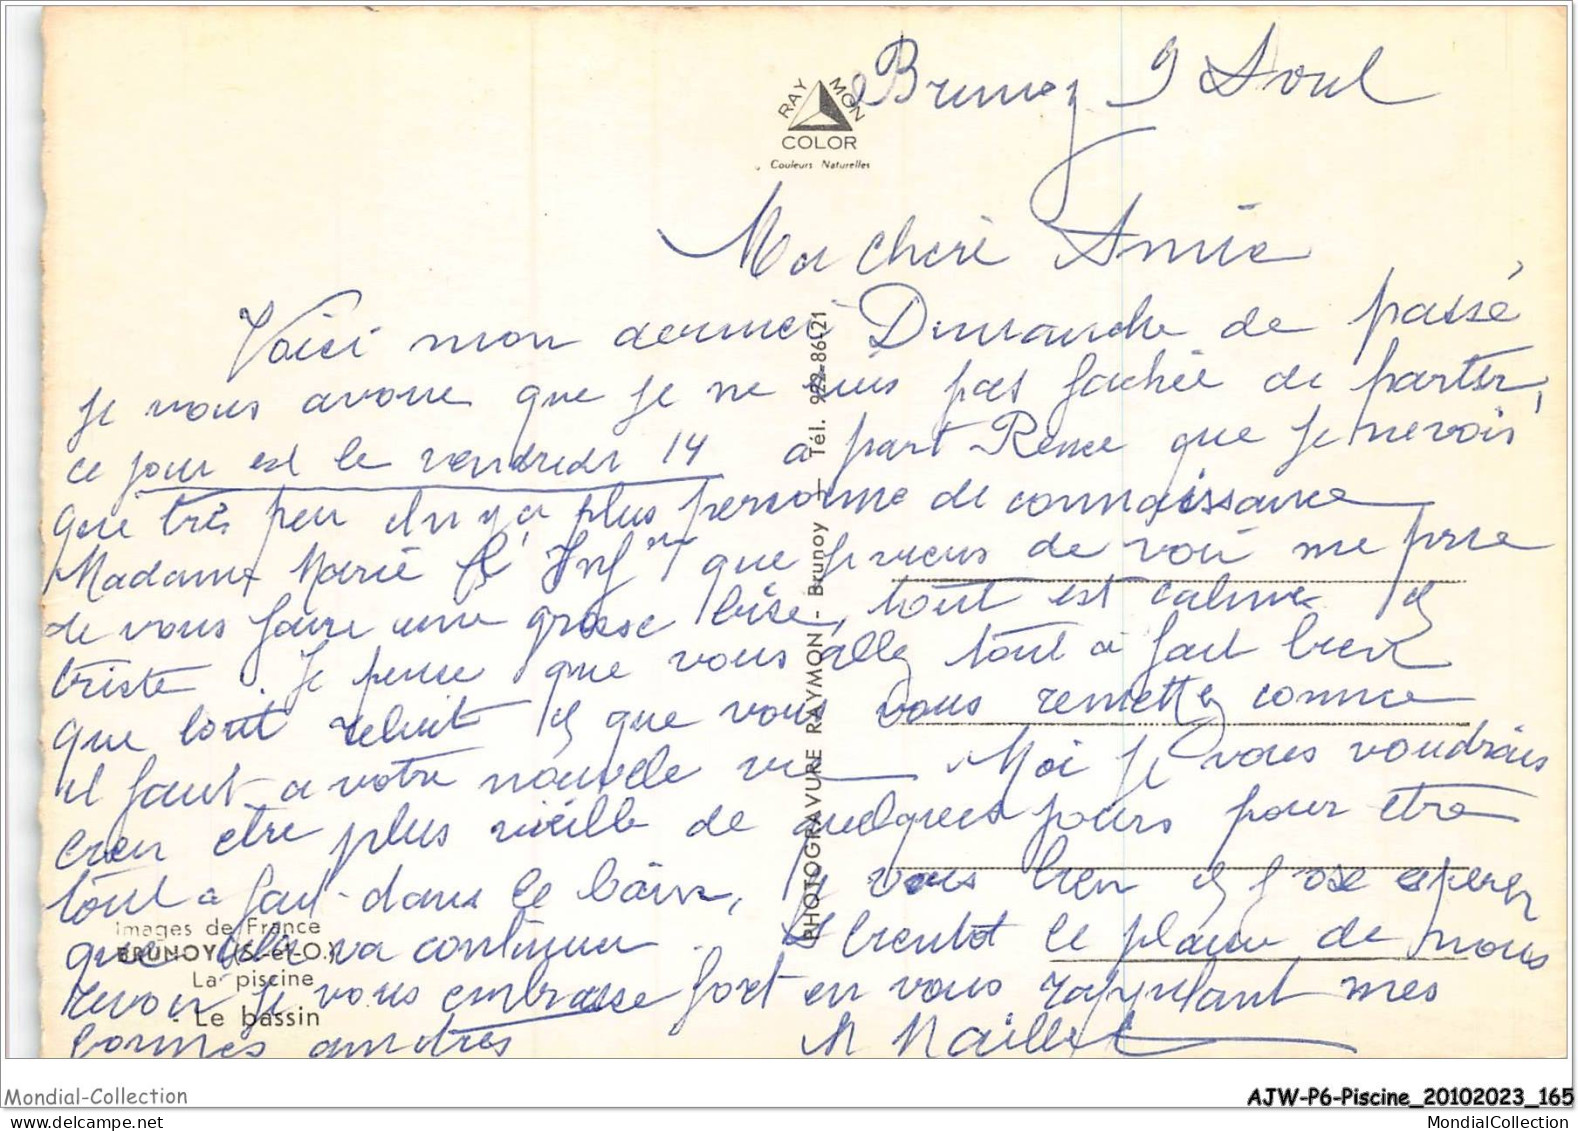 Brunoy 9 Aout
RAYMON
COLOR
Couleurs Naturelles
Ma cheri Amie
Voici mon dernier Dimanche de passé
je vous avoue que je ne suis pas fachée de partir,
ce jour est le vendredi 14 a part Renee que je ne vois
que très peu il n'y a plus personne de connaissance
Madame Marie l'Inf que je viens de voir me prie
de vous faire une grosse bise, tout est calme et
triste. Je pense que vous allez tout a fait bien
que tout reluit et que vous vous remettez comme
il faut a votre nouvelle vie Moi je vous voudrais
bien etre plus vieille de quelques jours pour etre
tout a fait dans le bain, je vous bien et j'ose esperer
que cela va continuer. A bientot le plaisir de nous
revoir je vous embrasse fort en vous rappelant mes
bonnes amitiés M Maillet
PHOTOGRAVURE RAYMON - Brunoy - Tél. 922-86-21
Images de France
BRUNOY (S.-et-O.)
La piscine
- Le bassin
Mondial-Collection
AJW-P6-Piscine_20102023_165
MondialCollection